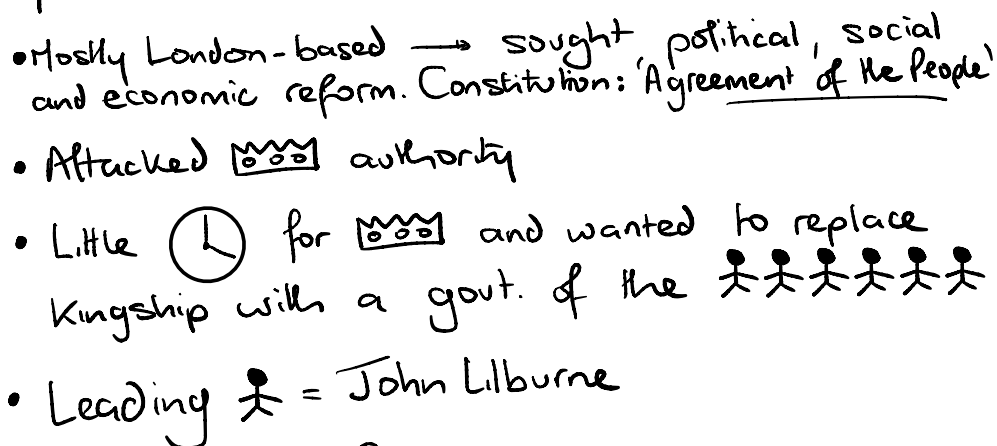 •Mostly London-based → sought political, social
and economic reform. Constitution: 'Agreement of the People'
• Attacked authority
• Little for and wanted to replace
Kingship with a govt. of the
• Leading = John Lilburne